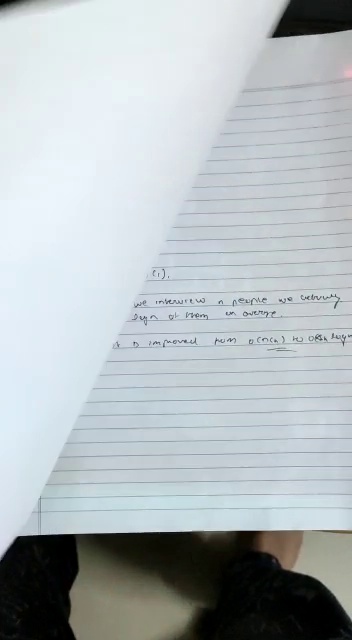 we interview n people we actually
logn of them on average.
is improved from O(nCh) to O(Ch logn